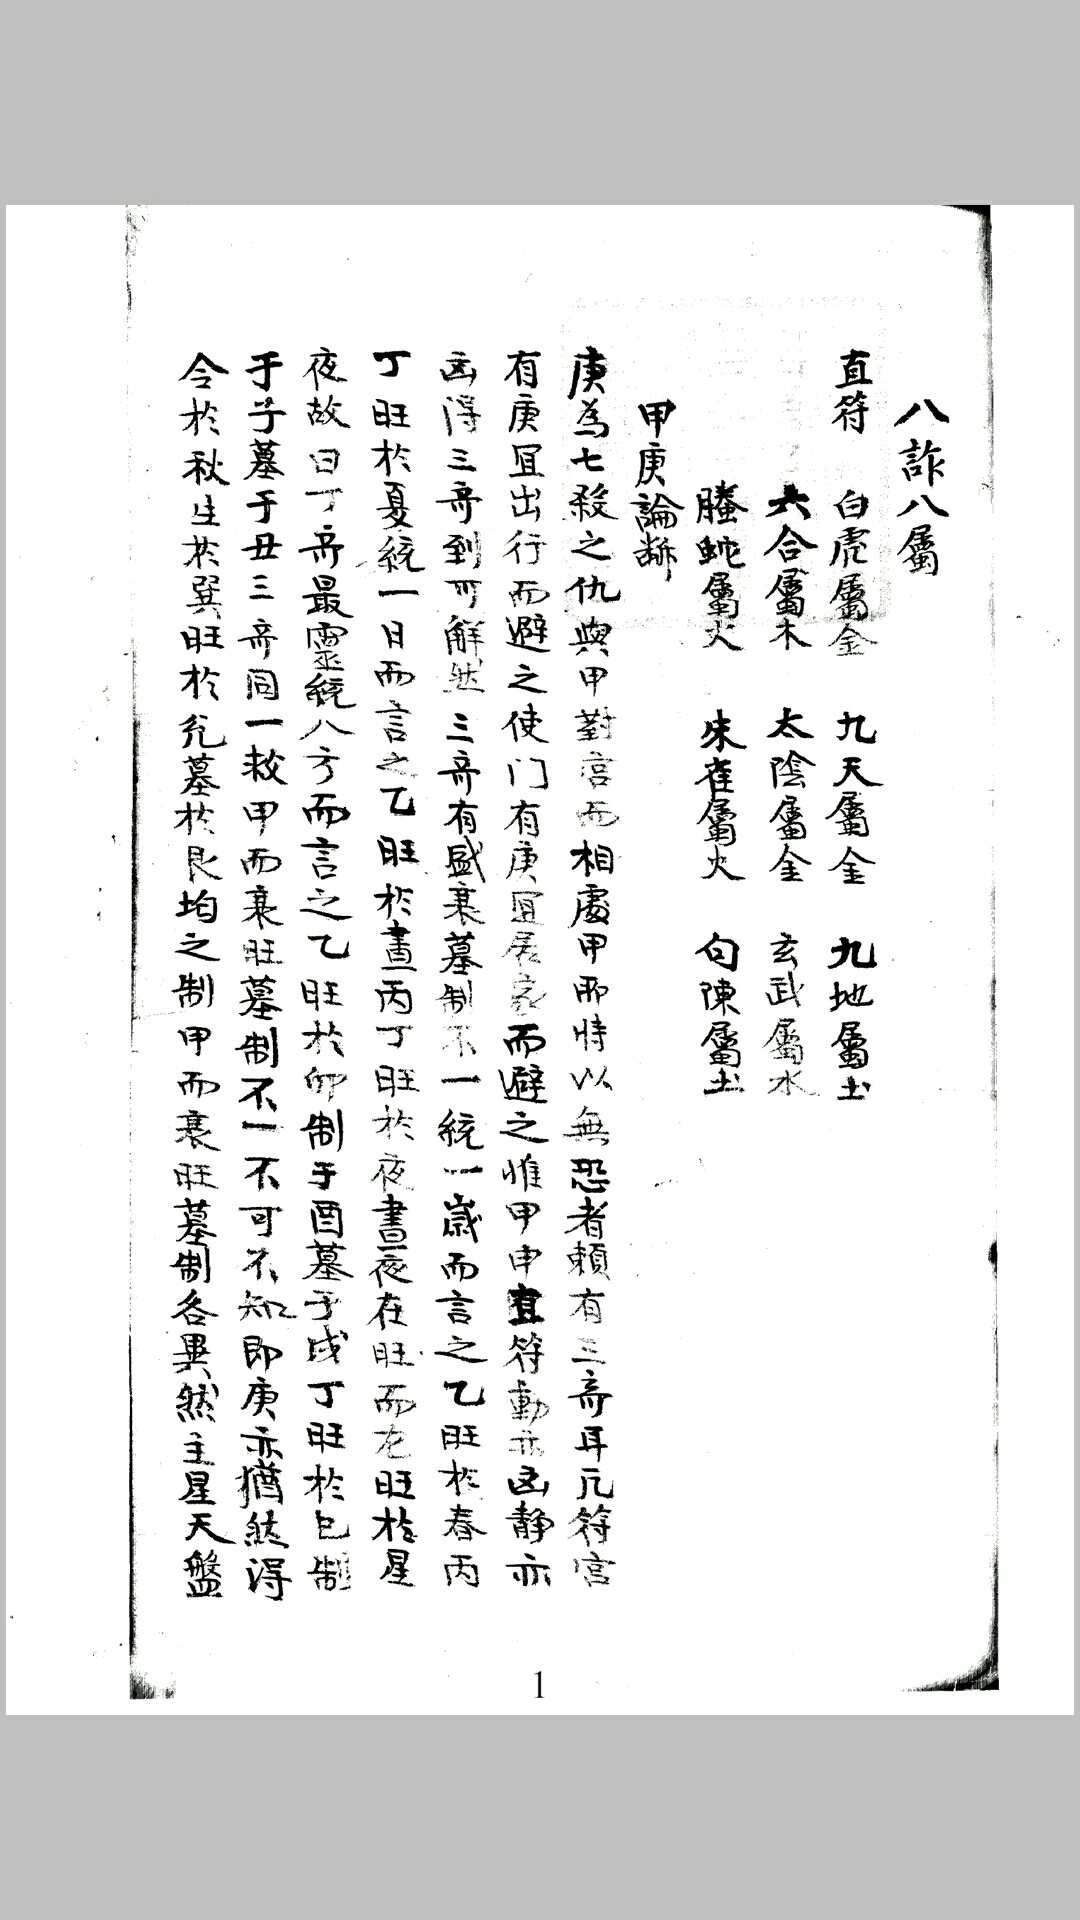 八詐八屬
直符　白虎屬金　九天屬金　九地屬土
六合屬木　太陰屬金　玄武屬水
螣蛇屬火　朱雀屬火　勾陳屬土
甲庚論斷
庚為七殺之仇與甲對宮而相處甲所恃以無恐者賴有三奇耳凡符宮
有庚宜出行而避之使门有庚宜居家而避之惟甲申直符動亦凶靜亦
凶得三奇到可解然三奇有盛衰墓制不一統一歲而言之乙旺於春丙
丁旺於夏統一日而言之乙旺於晝丙丁旺於夜晝夜在旺而尤旺於星
夜故曰丁奇最靈統八方而言之乙旺於卯制于酉墓于戌丁旺於巳制
于子墓于丑三奇同一救甲而衰旺墓制不一不可不知即庚亦猶然得
令於秋生於巽旺於兊墓於艮均之制甲而衰旺墓制各異然主星天盤
1